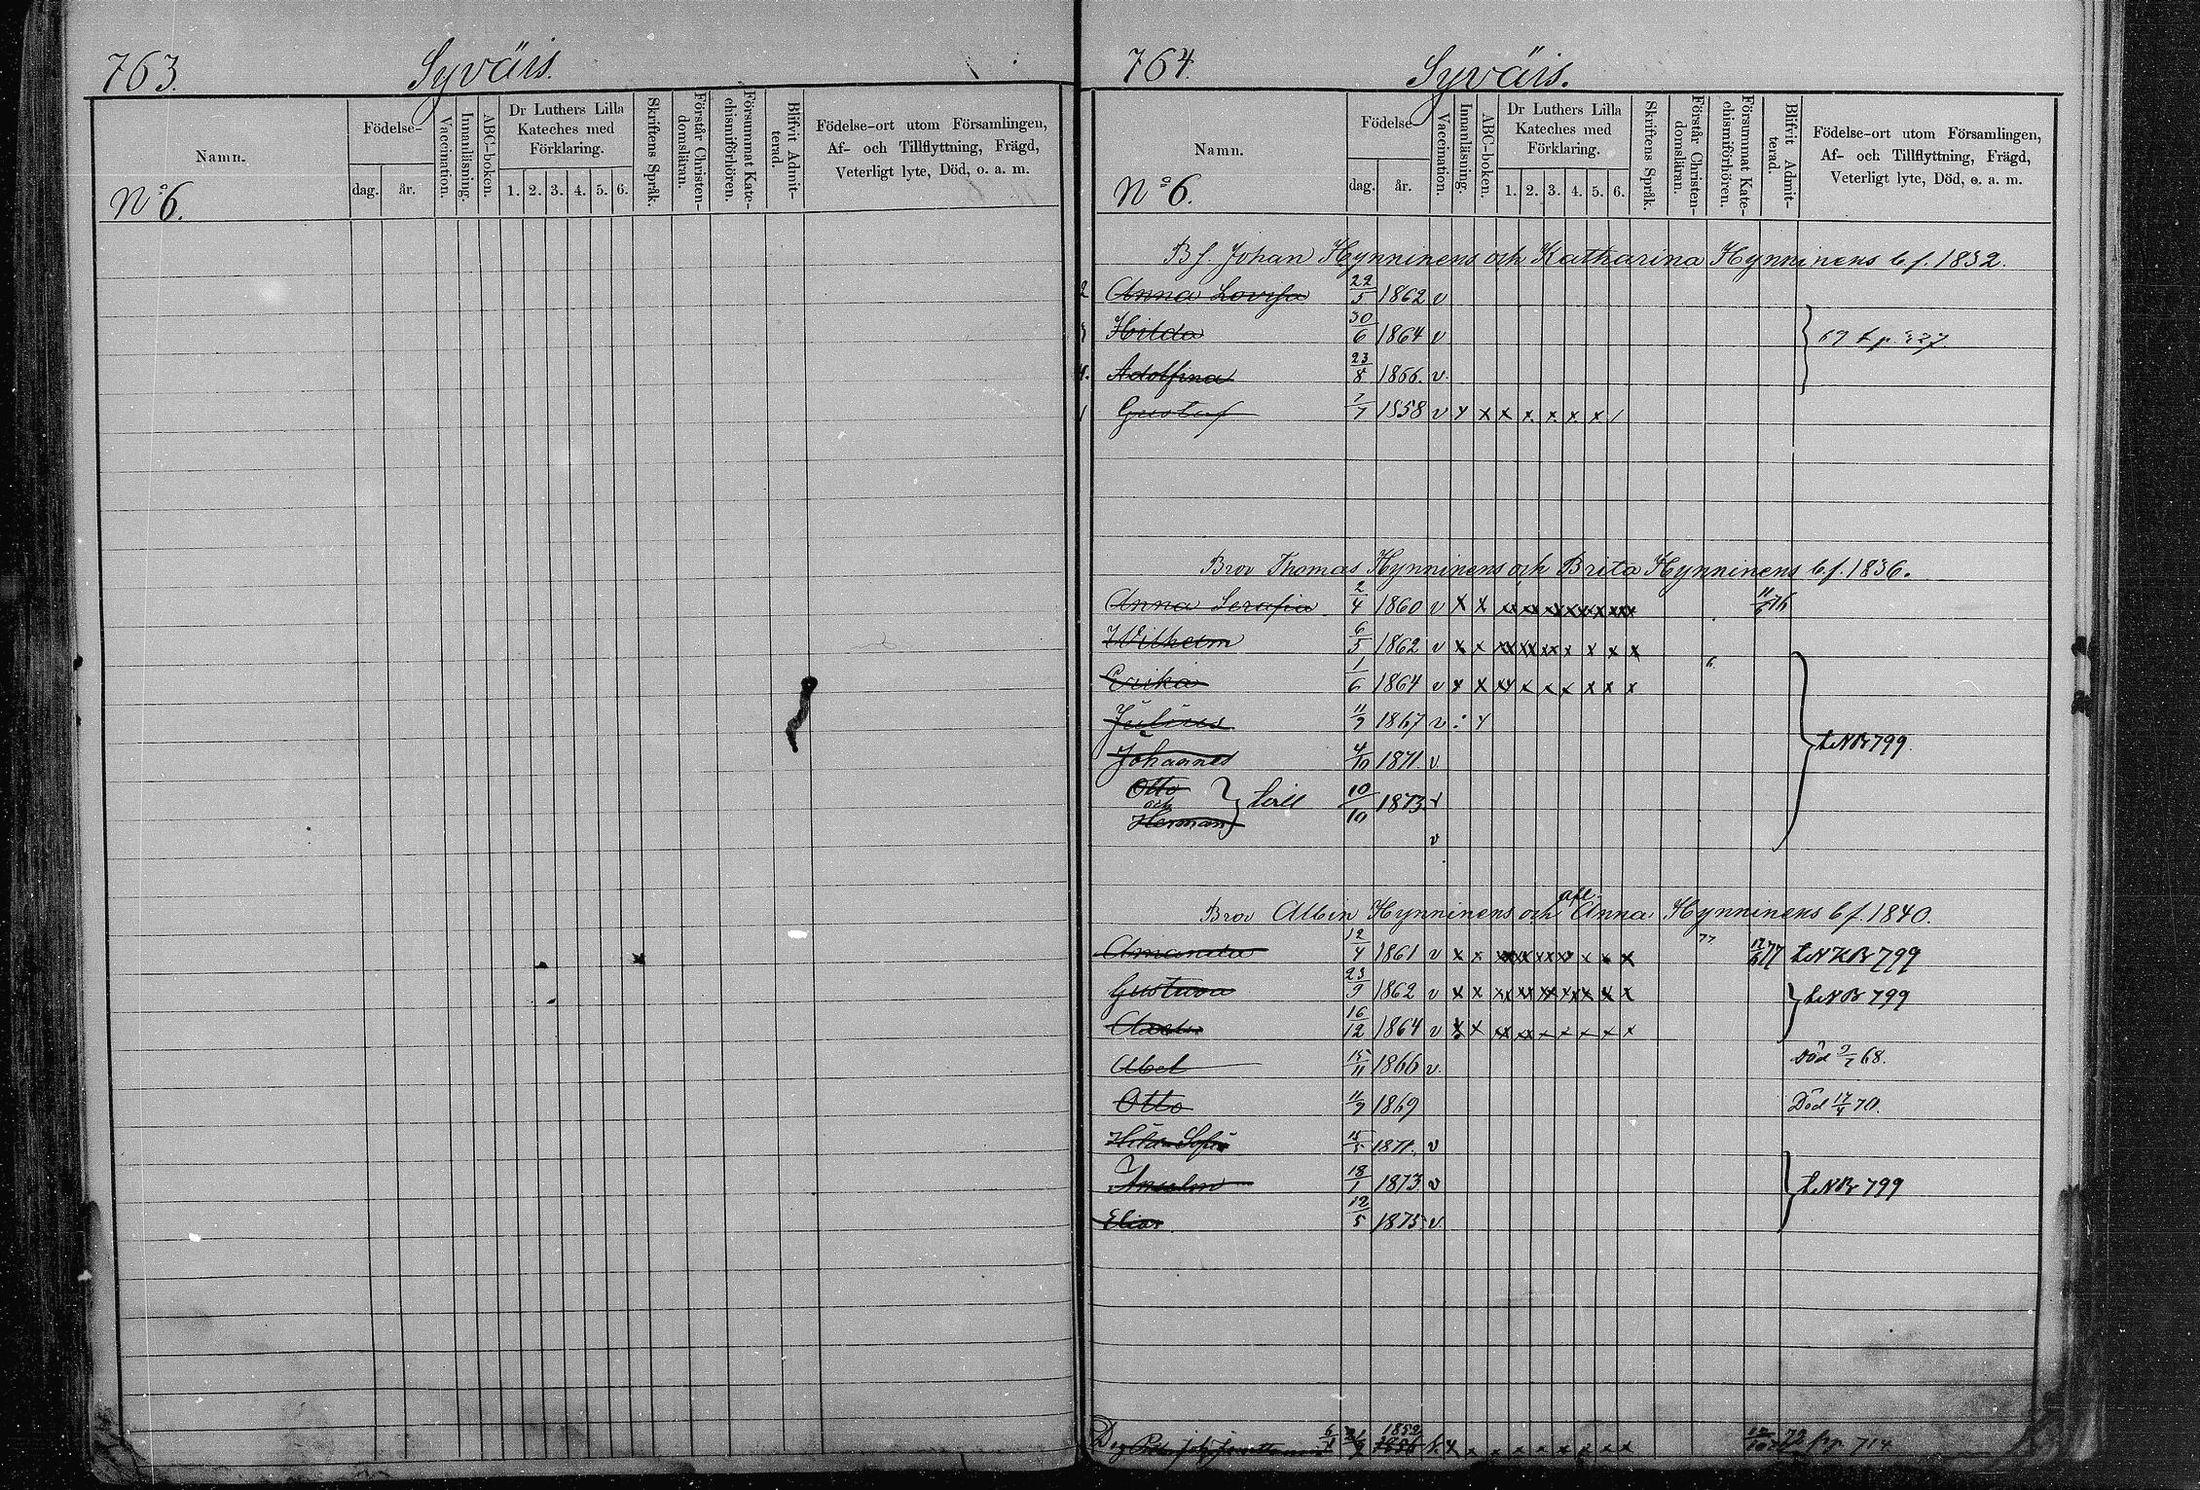 763. Syväis.
Namn.
Födelse-
dag. år.
Vaccination.
Innanläsning.
ABC-boken.
Dr Luthers Lilla
Kateches med
Förklaring.
1. 2. 3. 4. 5. 6.
Skriftens Språk.
Förstår Christen-
domsläran.
Försummat Kate-
chismiförhören.
Blifvit Admit-
terad.
Födelse-ort utom Församlingen,
Af- och Tillflyttning, Frägd,
Veterligt lyte, Död, o. a. m.
No 6.
764. Syväis.
Namn.
Födelse-
dag. år.
Vaccination.
Innanläsning.
ABC-boken.
Dr Luthers Lilla
Kateches med
Förklaring.
1. 2. 3. 4. 5. 6.
Skriftens Språk.
Förstår Christen-
domsläran.
Försummat Kate-
chismiförhören.
Blifvit Admit-
terad.
Födelse-ort utom Församlingen,
Af- och Tillflyttning, Frägd,
Veterligt lyte, Död, o. a. m.
No 6.
Bf. Johan Hynninens och Katharina Hynninens b f. 1832.
2 Anna Lovisa 22/5 1862 v
3 Hilda 30/6 1864 v
4. Adolfina 23/8 1866. v.
1 Gustaf 7/7 1858 v x x x x. x. x. x. /
Bror Thomas Hynninens och Brita Hynninens b f. 1836.
Anna Serafia 2/4 1860 v x x xx xx xx xx xx xxx 11/6 76
Wilhelm 6/5 1862 v x x xx xx xx x x x x
Erika 1/6 1864 v x x xx x x x x x x
Julius 11/9 1867 v
Johannes 4/10 1871. v.
Otto
och
Herman } tvill 10/10 1873 v
v
799.
Bror Albin Hynninens och afl. Anna Hynninens b f. 1840.
Amanda 12/4 1861 v x x xx xx xx xx x x x 77 12/6 77 799
Gustava 23/9 1862 v x x xx xx xx xx x x x 799
Axel 16/12 1864 v x x xx xx x x x x x
Abel 15/11 1866 v. Död 9/1 68.
Otto 11/9 1869 Död 17/4 70.
Hilda Sofia 15/5 1871. v
18/1 1873 v 799
Elias 12/5 1875 v.
1852
714